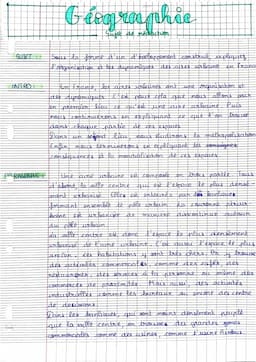 Géographie
Sujet de rédaction
SUJET Sous la forme d'un développement construit, expliquez
l'organisation et les dynamiques des aires urbaines en France
INTRO En France, les aires urbaines ont une organisation et
des dynamiques. C'est pour cela que nous allons voir
en premier lieu ce qu'est une aire urbaine. Puis
nous continuerons en expliquant ce que l'on trouve
dans chaque partie de ces espaces.
Dans un second lieu, nous étudierons la métropolisation
Enfin, nous terminerons en expliquant les
conséquences de la mondialisation de ces espaces.
Une aire urbaine est composée en trois parties. Tout
d'abord la ville centre qui est l'espace le plus densé-
ment urbanisé. Elles se mêlent par
forment ensemble le pôle urbain. La couronne périur-
baine est urbanisée de manière discontinue autour
du pôle urbain.
La ville centre est donc l'espace le plus densément
urbanisé de l'aire urbaine. C'est aussi l'espace le plus
ancien. Les habitations y sont très chères. On y trouve
des activités commerciales comme des cafés, des
restaurants, des services à la personne ou même des
commerces de proximité. Mais aussi, des activités
industrielles comme les bureaux ou encore des centres
de décisions.
Dans les banlieues, qui sont moins densément peuplé
que la ville centre, on trouve des grandes zones
commerciales comme des usines, comme l'usine